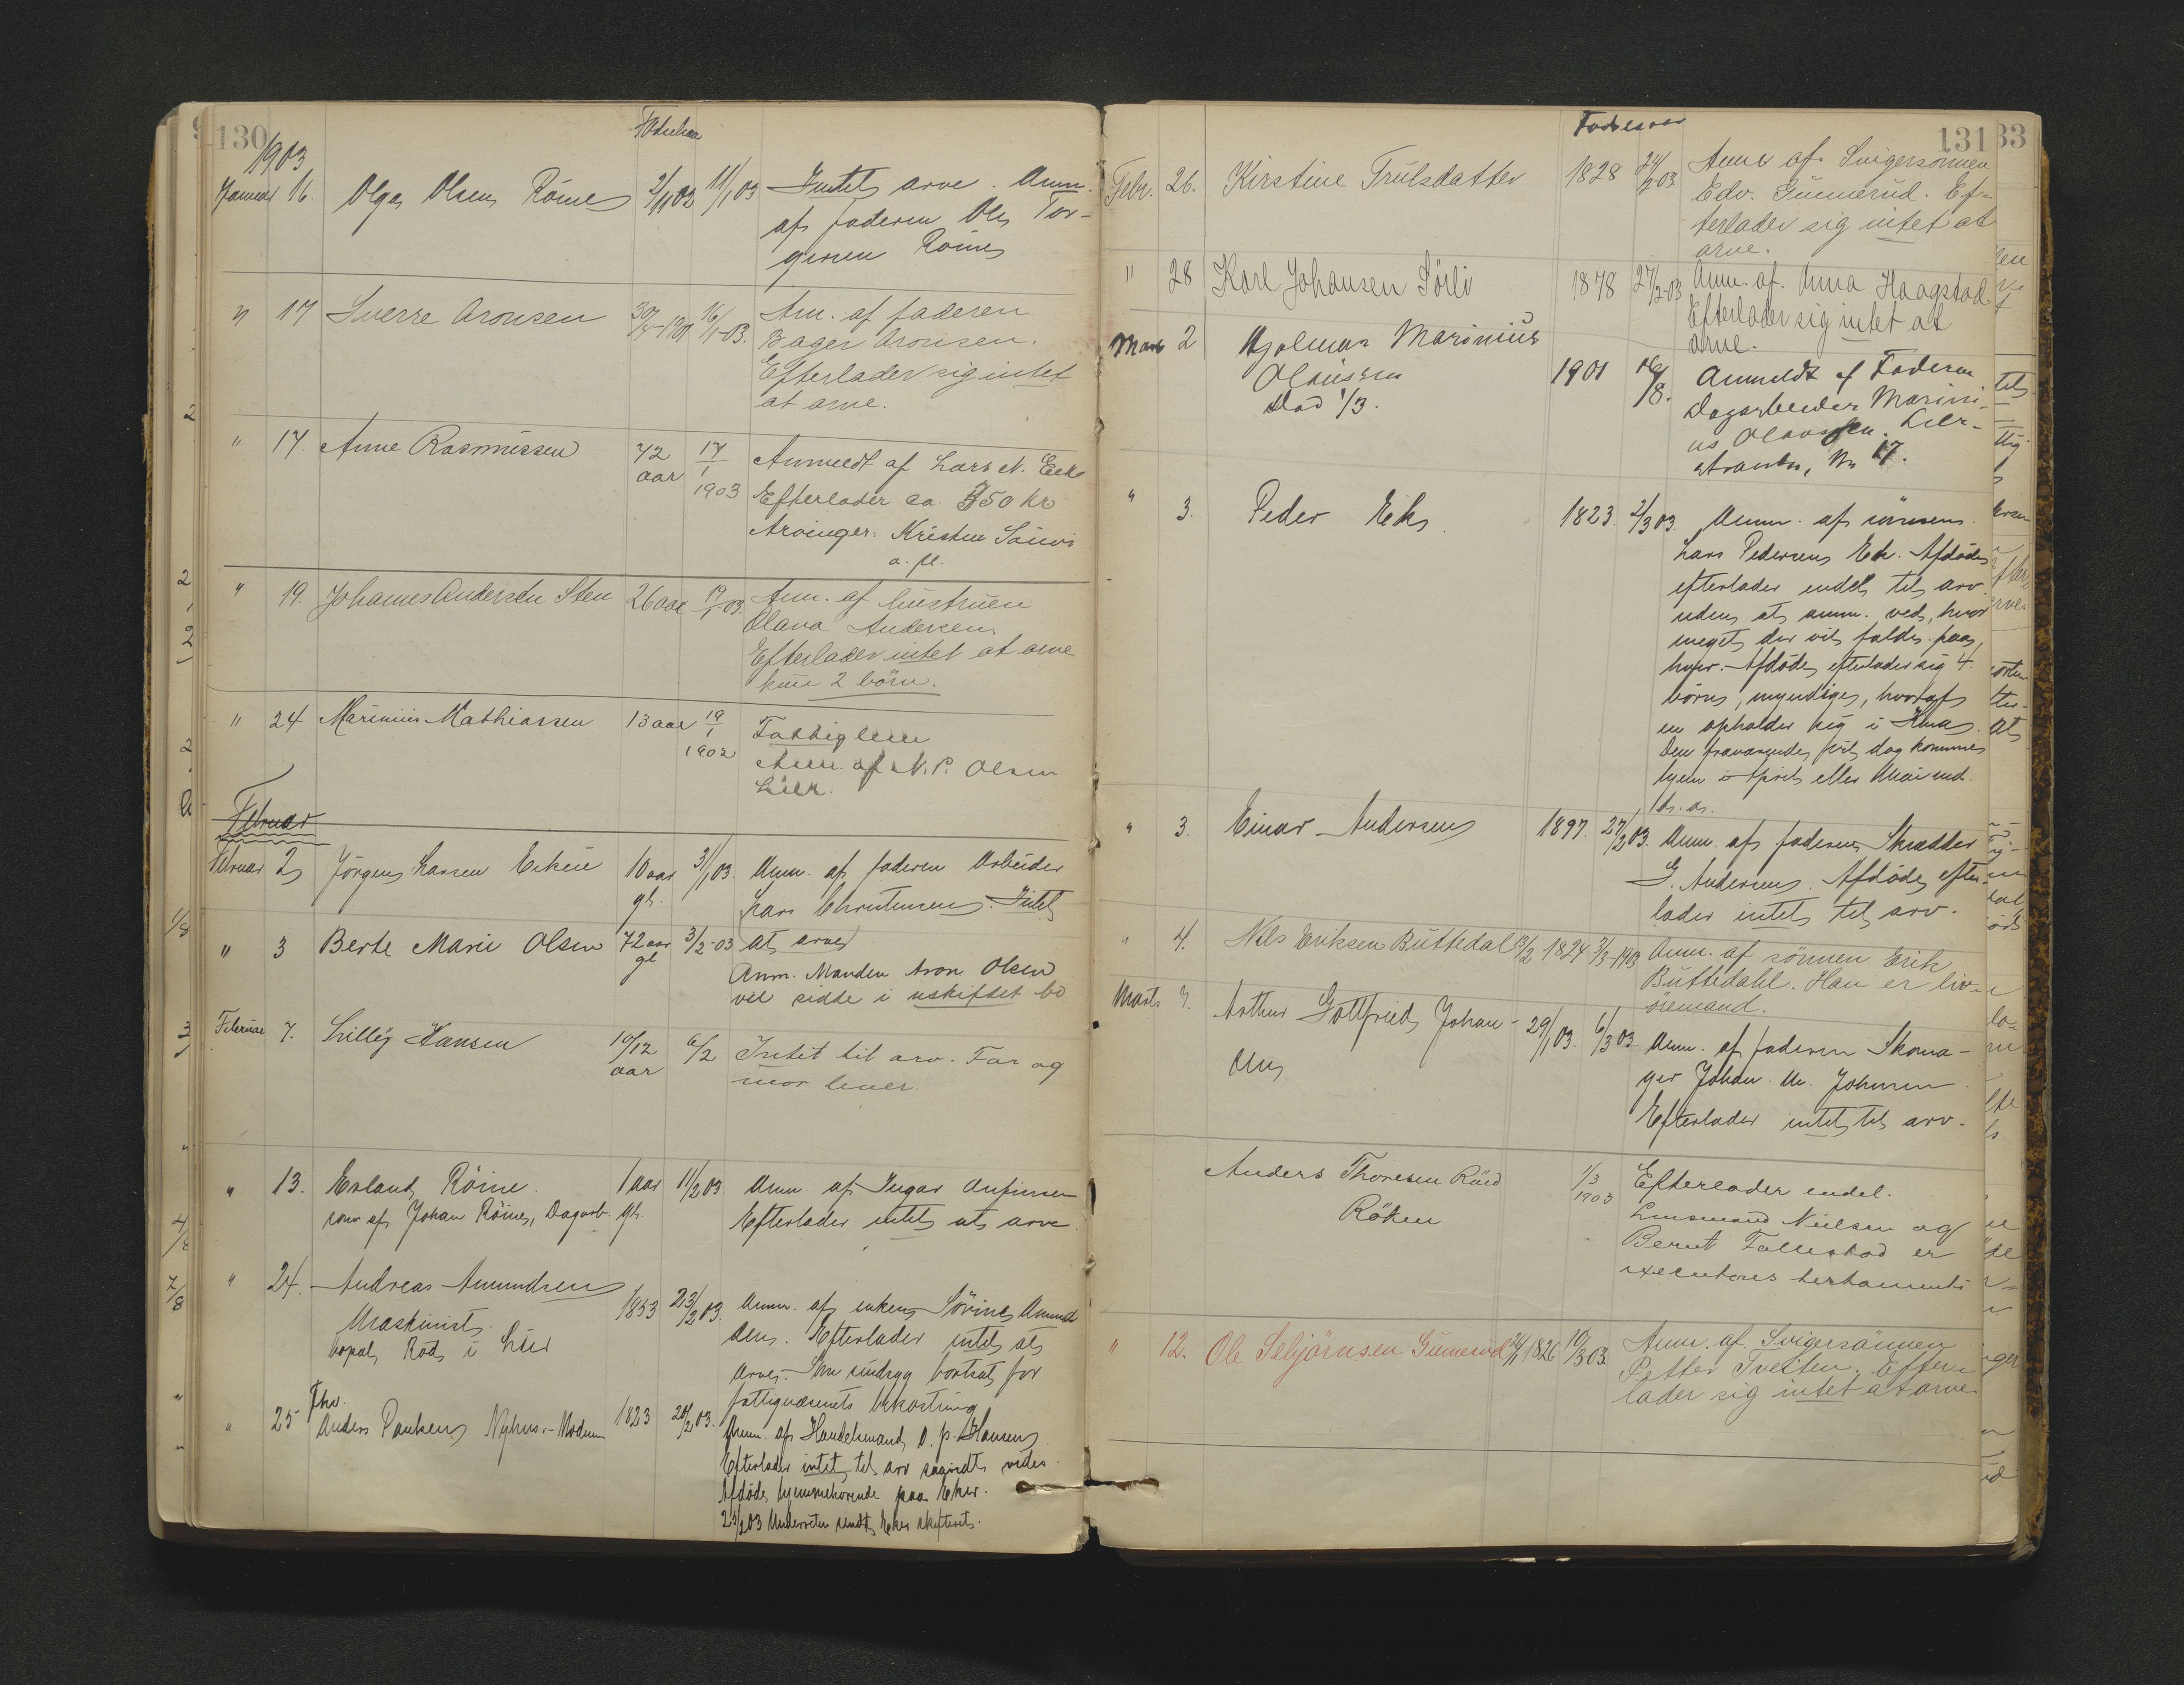 130
1903
Januar 16. Olga Olsen Röine 2/11 02 11/1 03 Intet arve. Anm.
af faderen Ole Tor-
gersen Röine
" 17 Sverre Aronsen 30/5-1901 16/1-03. Am. af faderen
Bager Aronsen.
Efterlader sig intet
at arve.
" 17. Anne Rasmussen 72 aar 17/1 1903 Anmeldt af Lars N. Eek
Efterlader ca. 350 kr
Arvinger: Kristen
a. fl.
" 19. Johannes Andersen Sten 26 aar 19/1-03. Anm. af hustruen
Olava Andersen.
Efterlader intet at arve
kun 2 börn.
" 24 Marinius Mathiassen 13 aar 19/1 1902 Fattiglem
Anm. af N. P. Olsen
Lier.
Februar
Februar 2 Jörgen Larsen 10 aar gl. 3/1 03. Anm. af faderen Arbeider
Lars Christensen. Intet
at arve
" 3 Berte Marie Olsen 72 aar gl 3/2-03
Anm. Manden Aron Olsen
vil sidde i uskiftet bo
Februar 7. Lilly Hansen 10/12 aar 6/2 Intet til arv. Far og
mor lever.
" 13. Erland Röine. 1 aar gl. 11/2 03 Anm af Ingar Anfinsen
sön af Johan Röine, Dagarb. Efterlader intet at arve
" 24. Andreas Amundsen 1853 23/2 03. Anm. af enken Sörine Amund
Maskinist. sen. Efterlader intet at
bopal Röd i Lier arve. Sindsyg bortsat for
fattigvæsenets bekostning
Fhv.
" 25 Anders Paulsen Nyhus - Modum 1823 20/2 03. Anm. af Handelsmand O. P. Hansen
Efterlader intet til arv saavidt vides.
Afdöde hjemmehörende paa Eker.
25/2 03 Underretn sendt Eker skifteret.
131
33
Födselsaar
Febr. 26. Kirstine Trulsdatter 1828 24/2 03 Anm af. Svigersönnen
Edv. Gunnerud. Ef-
terlader sig intet at
arve.
" 28 Karl Johansen Sörli 1878 27/2-03 Anm. af. Anna Haagstad
Efterlader sig intet at
arve.
Marts 2 Hjalmar Marinius 1901 Anmeldt af Faderen
Olausen Dagarbeider Marini-
Död 1/3. us Olaussen. Lier-
stranden, No 17.
" 3. Peder Eek. 1823. 2/3 03. Anm. af sönnen
Lars Pedersen Eek. Afdöde
efterlader endel til arv
uden at anm. ved, hvor
meget der vil falde paa
hver. Afdöde efterlader sig 4
börn, myndige, hvoraf
en opholder sig i
Den fraværende vil dog komme
hjem i April eller Mai md.
d. a.
" 3. Einar Andersen 1897. 27/2 03. Anm. af faderen Skrædder
G. Andersen. Afdöde efter-
lader intet til arv.
" 4. Nils Eriksen Buttedal 13/2 1824 3/3-1903 Anm. af sönnen Erik
Buttedahl. Han er liv-
öremand.
Marts 7. Arthur Gottfried Johan- 29/1 03. 6/3 03 Anm. af faderen Skoma-
sen ger Johan M. Johansen.
Efterlader intet til arv.
Anders Thoresen Röed 1/3 1903 Efterlader endel.
Röken Lensmand Nielsen og
Bernt Follestad er
executores testamenti
" 12. Ole Selfjörnsen Gunnerud 24/11 1826 10/3 03. Anm. af. Svigersönnen
Petter Tveiten. Efter-
lader sig intet at arve